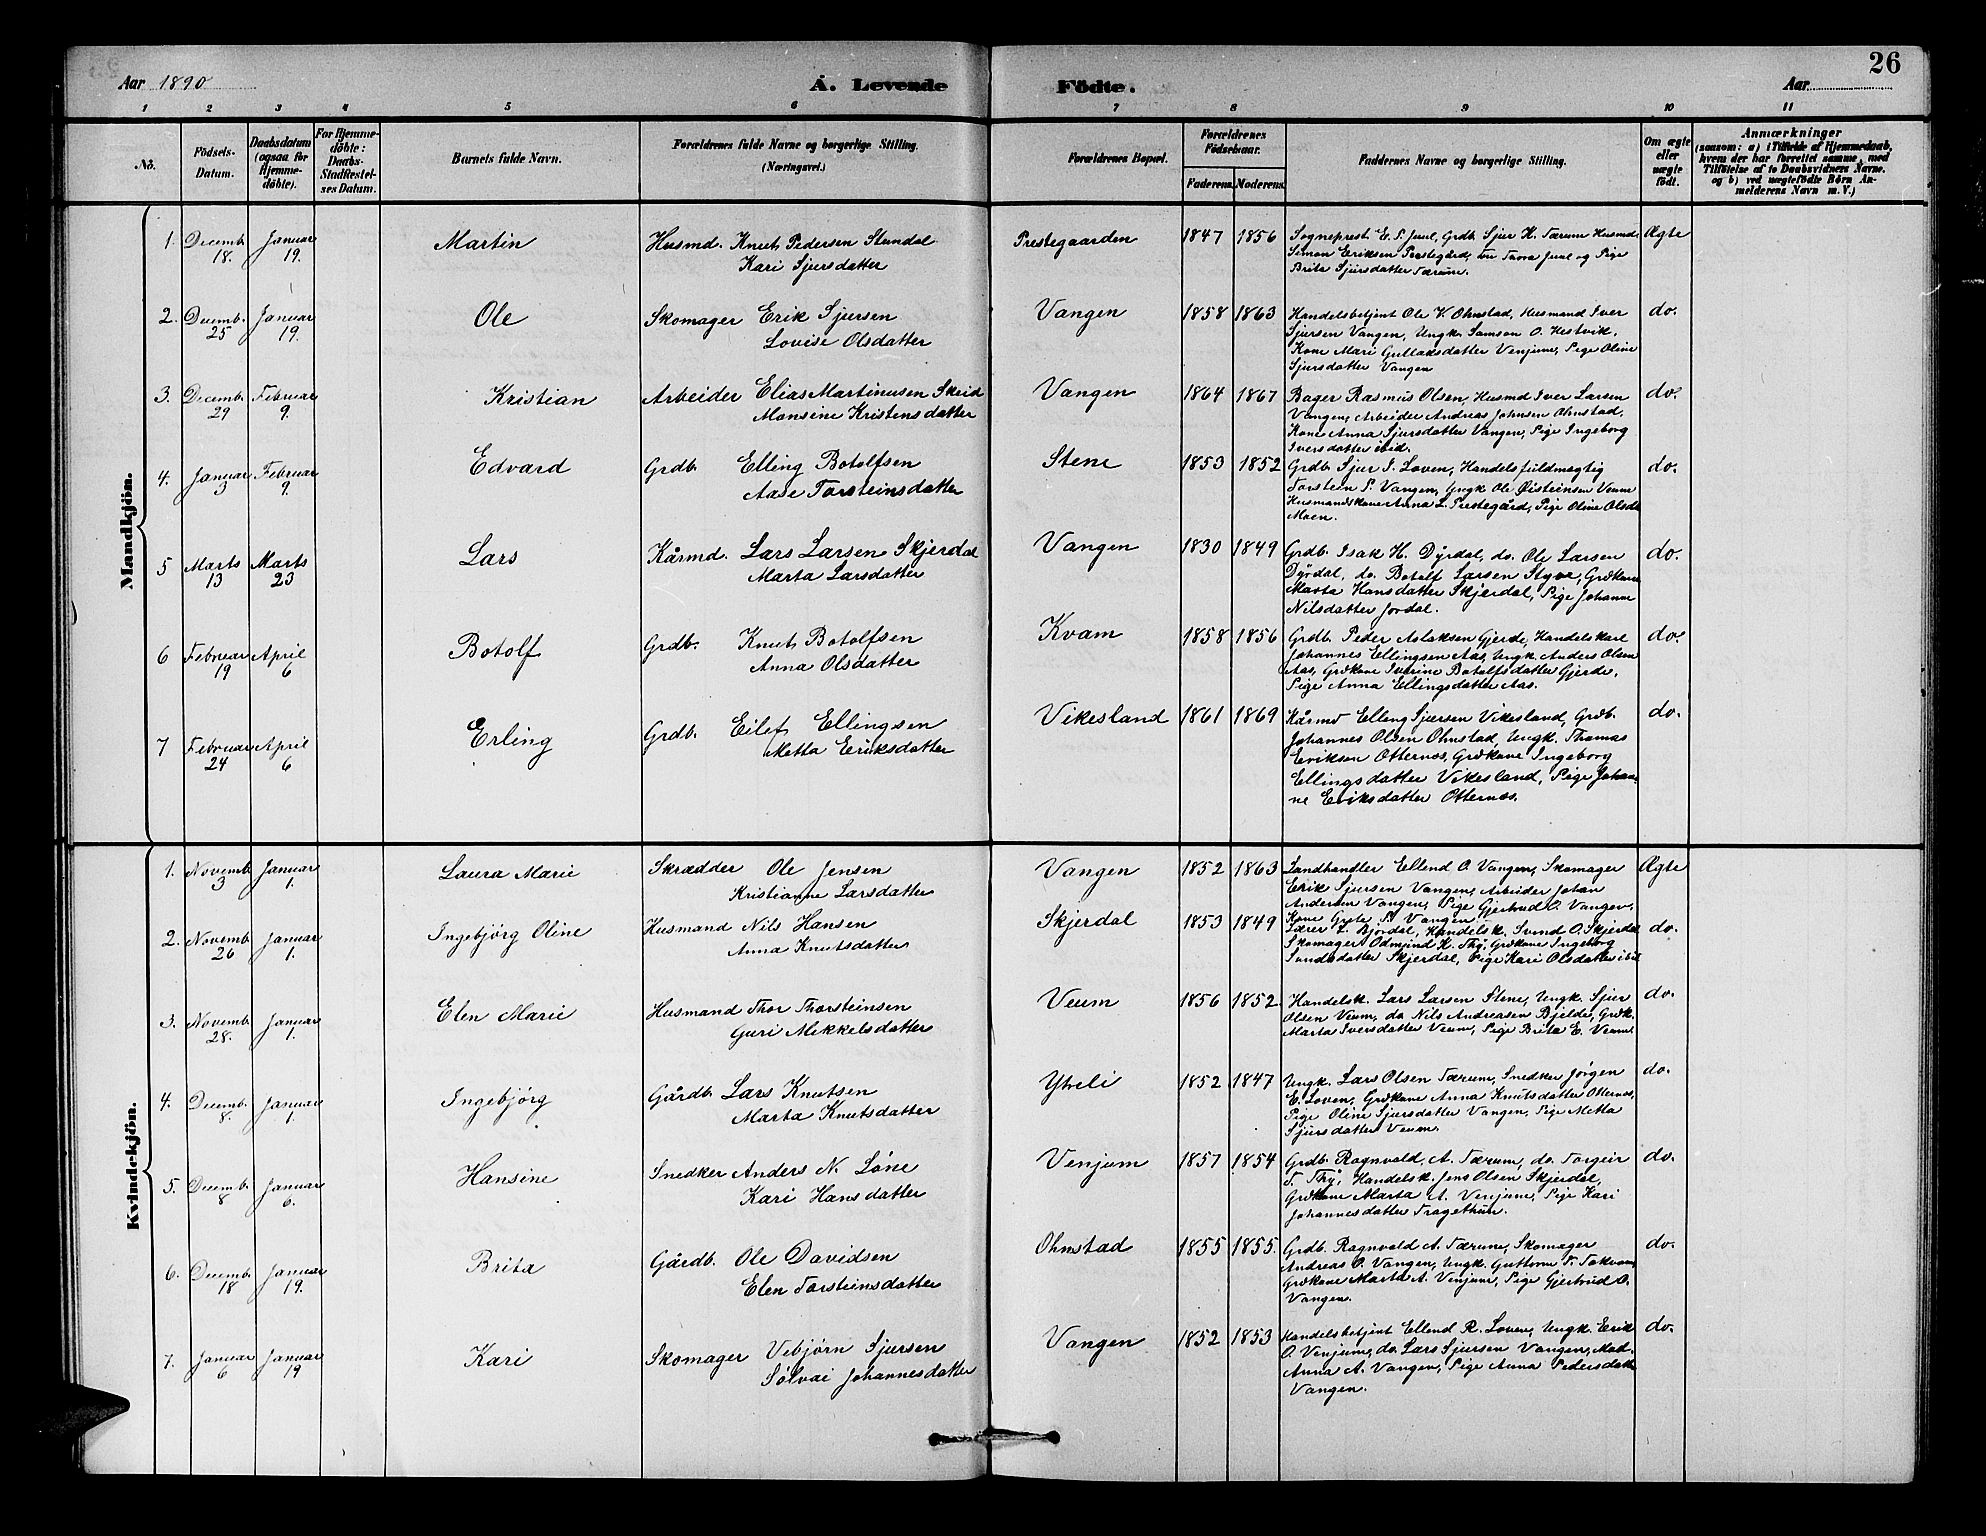 26
Aar 1890
A. Levende Födte.
Aar
1 2 3 4 5 6 7 8 9 10 11
No.
Födsels-Datum.
Daabsdatum (ogsaa for Hjemmedöbte).
For Hjemmedöbte: Daabs-Stadfestelses Datum.
Barnets fulde Navn.
Forældrenes fulde Navne og borgerlige Stilling. (Næringsvei.)
Forældrenes Bopæl.
Forældrenes Födselsaar.
Faderens. Moderens.
Faddernes Navne og borgerlige Stilling.
Om ægte eller uægte födt.
Anmærkninger
(saasom: a) i Tilfælde af Hjemmedaab, hvem der har forrettet samme, med Tilföielse af to Daabsvidners Navne. og b) ved uægtefödte Börn Anmelderens Navn m. V.)
Mandkjön.
1. Decemb. 18. Januar 19. Martin
Husmd. Knut Pedersen Stundal
Kari Sjursdatter
Prestegaarden 1847 1856
Sogneprest E. P. Juul, Grdb. Sjur K. Tærum Husmd.
Simon Eriksen Prestegård, Thora Juul og Pige
Brita Sjursdatter Tærum.
Ægte
2. Decemb. 25 Januar 19. Ole
Skomager Erik Sjursen
Lovise Olsdatter
Vangen 1858 1863
Handelsbetjent Ole K. Ohnstad, Husmand Iver
Sjursen Vangen, Ungk. Samson O. Hestvik,
Kone Mari Gullaksdatter Venjum, Pige Oline
Sjursdatter Vangen
do.
3. Decemb. 29 Februar 9. Kristian
Arbeider Elias Martinusen Skeid
Monsine Kristensdatter
Vangen 1864 1867
Bager Rasmus Olsen, Husmd Iver Larsen
Vangen, Arbeider Andreas Johnsen Ohnstad,
Kone Anna Sjursdatter Vangen, Pige Ingeborg
Iversdatter ibid.
do.
4. Januar 3 Februar 9. Edvard
Grdb. Elling Botolfsen
Aase Torsteinsdatter
Stene 1853 1852
Grdb. Sjur I. Loven, Handelsfuldmægtig
Torstein P. Vangen, Ungk Ole Øisteinsen Veum
Husmandskone Anna L. Prestegård, Pige Oline Olsd.
Moen.
do.
5 Marts 13 Marts 23 Lars
Kårmd. Lars Larsen Skjerdal
Marta Larsdatter
Vangen 1830 1849
Grdb. Isak H. Dyrdal, do. Ole Larsen
Dyrdal, do. Botolf Larsen Styve, Grdkone
Marta Hansdatter Skjerdal, Pige Johanne
Nilsdatter Jordal.
do.
6 Februar 19 April 6 Botolf
Grdb. Knut Botolfsen
Anna Olsdatter
Kvam 1858 1856
Grdb. Peder Aslaksen Gjerde, Handelskarl
Johannes Ellingsen Aas, Ungk. Anders Olsen
Aas, Grdkone Iverine Botolfsdatter Gjerde,
Pige Anna Ellingsdatter Aas.
do.
7 Februar 24 April 6 Erling
Grdb. Eilef Ellingsen
Metta Eriksdatter
Vikesland 1861 1869
Kårmd Elling Sjursen Vikesland, Grdb.
Johannes Olsen Ohnstad, Ungk. Thomas
Eriksen Otternes, Grdkone Ingeborg
Ellingsdatter Vikesland, Pige Johan-
ne Eriksdatter Otternes.
do.
Kvindekjön.
1. Novemb. 3 Januar 1. Laura Marie
Skrædder Ole Jensen
Kristianne Larsdatter
Vangen 1852 1863
Landhandler Ellend O. Vangen, Skomager
Erik Sjursen Vangen, Arbeider Johan
Andersen Vangen, Pige Gjertrud O. Vangen,
Kone Gyde P. Vangen.
Ægte
2. Novemb. 26 Januar 1. Ingebjørg Oline
Husmand Nils Hansen
Anna Knutsdatter
Skjerdal 1853 1849
Lærer L. Bjørdal, Handelsk. Svend O. Skjerdal
Skomager Odmund K. Thy, Grdkone Ingeborg
Svendsdatter Skjerdal, Pige Kari Olsdatter ibid
do.
3. Novemb. 28. Januar 1. Elen Marie
Husmand Thor Thorsteinsen
Guri Mikkelsdatter
Veum 1856 1852.
Handelsk. Lars Larsen Stene, Ungk. Sjur
Olsen Veum, do Nils Andreasen Bjelde, Grdk.
Marta Iversdatter Veum, Pige Brita E. Veum.
do.
4. Decemb. 8. Januar 1. Ingebjørg
Gårdb. Lars Knutsen
Marta Knutsdatter
Ytreli 1852 1847
Ungk. Lars Olsen Tærum, Snedker Jørgen
E. Loven, Grdkone Anna Knutsdatter Otternes,
Pige Oline Sjursdatter Vangen, Pige Metta
Sjursdatter Veum.
do.
5. Decemb. 8 Januar 6. Hansine
Snedker Anders N. Løne
Kari Hansdatter
Venjum 1857 1854
Grdb. Ragnvald A. Tærum, do. Torgeir
T. Thy, Handelsk. Jens Olsen Skjerdal,
Grdkone Marta A. Venjum, Pige Kari
Johannesdatter Fragethun.
do.
6. Decemb. 18 Januar 19. Brita
Gårdb. Ole Davidsen
Elen Torsteinsdatter
Ohnstad 1855 1855.
Grdb. Ragnvald A. Tærum, Skomager
Andreas O. Vangen, Ungk. Guttorm T. Tokvam,
Grdkone Marta A. Venjum, Pige Gjertrud O.
Vangen.
do.
7. Januar 6 Januar 19 Kari
Skomager Vebjørn Sjursen
Sølvai Johannesdatter
Vangen 1852 1853
Handelsbetjent Ellend R. Loven, Ungk. Erik
O. Venjum, do. Lars Sjursen Vangen, Mad.
Anna A. Vangen, Pige Anna Pedersdatter
Vangen.
do.